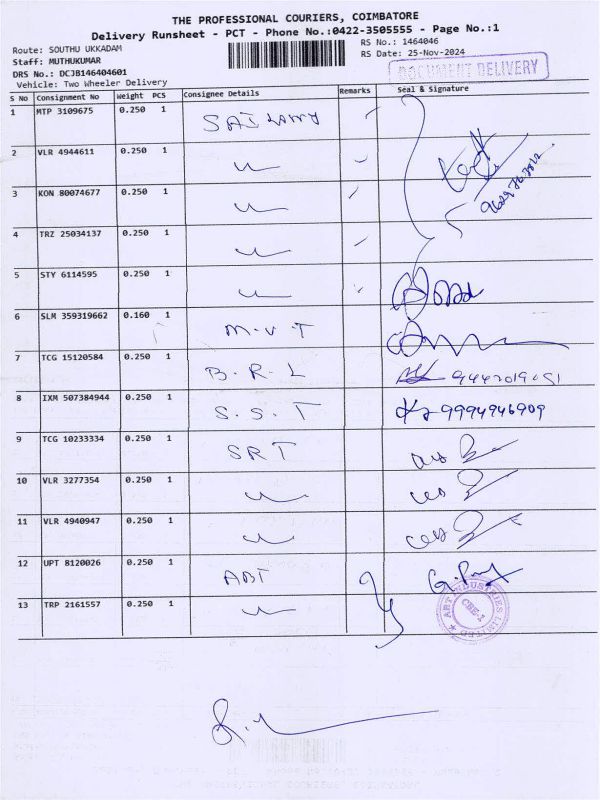 THE PROFESSIONAL COURIERS, COIMBATORE
Delivery Runsheet - PCT - Phone No.:0422-3505555 - Page No.:1
Route: SOUTHU UKKADAM
RS No.: 1464046
Staff: MUTHUKUMAR
RS Date: 25-Nov-2024
DRS No.: DCJB146404601
DOCUMENT DELIVERY
Vehicle: Two Wheeler Delivery
S No Consignment No Weight PCS Consignee Details Remarks Seal & Signature
1 MTP 3109675 0.250 1
2 VLR 4944611 0.250 1
3 KON 80074677 0.250 1
4 TRZ 25034137 0.250 1
5 STY 6114595 0.250 1
6 SLM 359319662 0.160 1 M.V.T
7 TCG 15120584 0.250 1 B.R.L
8 IXM 507384944 0.250 1 S.S.T 9994946909
9 TCG 10233334 0.250 1 SRT
10 VLR 3277354 0.250 1
11 VLR 4940947 0.250 1
12 UPT 8120026 0.250 1 ABT
ABT INDUSTRIES LIMITED
CBE-1
13 TRP 2161557 0.250 1